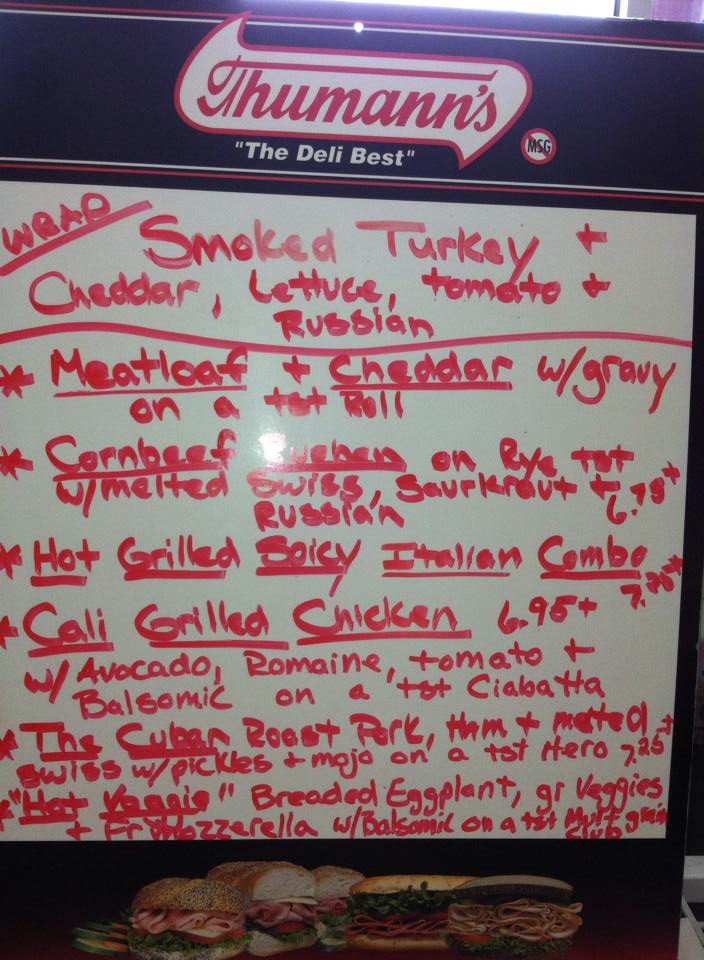 Thumann's
"The Deli Best"
MSG
WRAP
Smoked Turkey +
Cheddar, Lettuce, tomato +
Russian
* Meatloaf + Cheddar w/gravy
on a tst Roll
* Cornbeef Rueben on Rye tst
w/melted Swiss, Saurkraut +
Russian 6.75+
* Hot Grilled Spicy Italian Combo
7.25+
* Cali Grilled Chicken 6.95+
w/ Avocado, Romaine, tomato +
Balsomic on a tst Ciabatta
* The Cuban Roast Pork, Ham + melted
Swiss w/pickles + mojo on a tst Hero 7.25+
"Hot Veggie" Breaded Eggplant, gr Veggies
+ Fr Mozzerella w/Balsomic on a tst Multi grain
Club